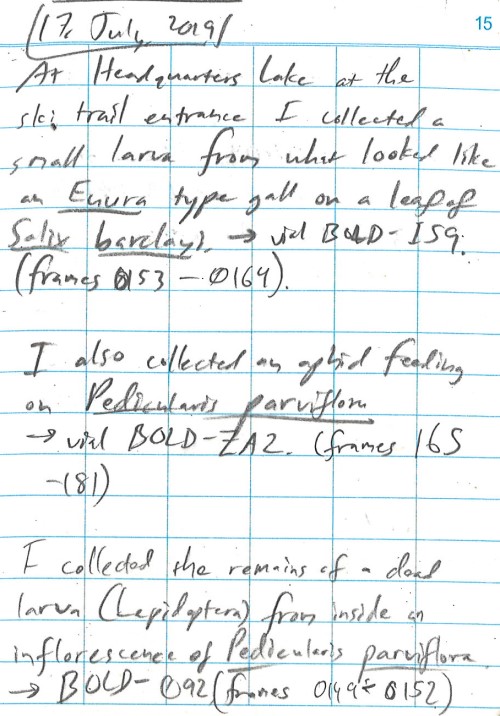 17. July, 2019
15
At Headquarters Lake at the
ski trail entrance I collected a
small larva from what looked like
an Euura type gall on a leaf of
Salix barclayi. → vial BOLD-I59.
(frames 0153 – 0164).
I also collected an aphid feeding
on Pedicularis parviflora
→ vial BOLD-ZA2. (frames 165
-181)
I collected the remains of a dead
larva (Lepidoptera) from inside an
inflorescence of Pedicularis parviflora
→ BOLD-092 (frames 0149- 0152)